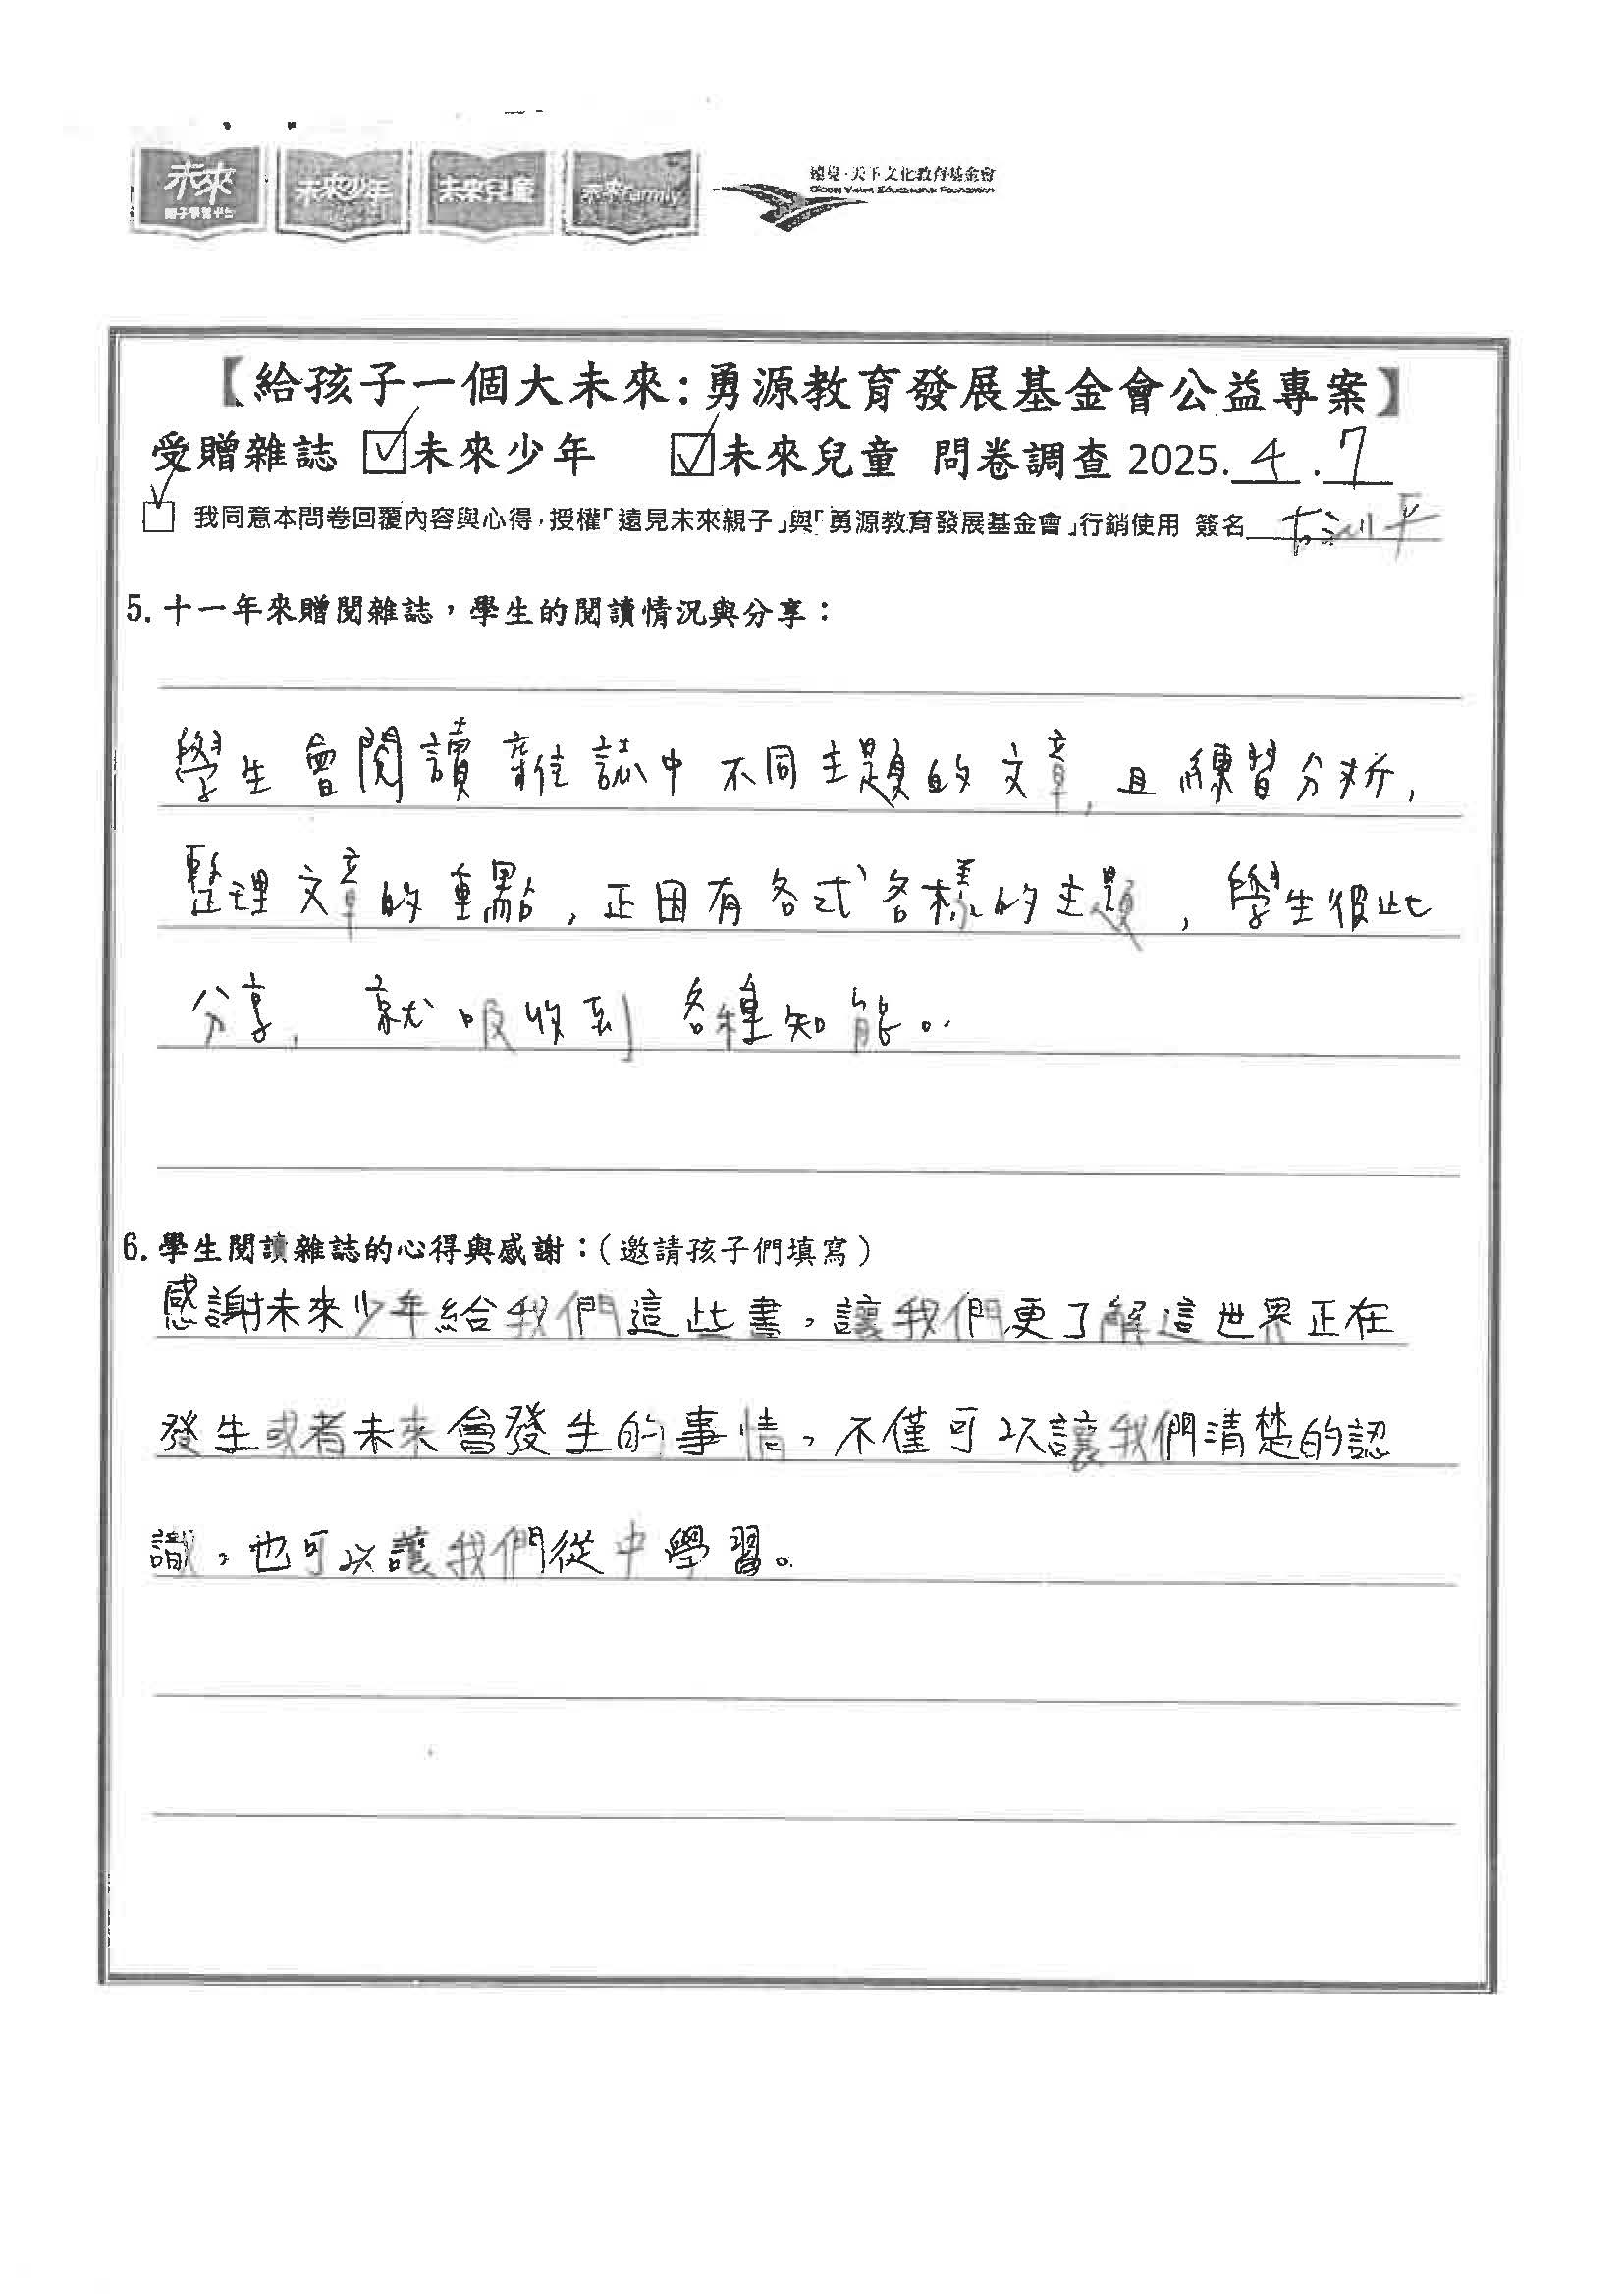 未來
親子學習平台
未來少年
未來兒童
未來Family
遠見‧天下文化教育基金會
Global Views Educational Foundation
【給孩子一個大未來:勇源教育發展基金會公益專案】
受贈雜誌 ☑未來少年 ☑未來兒童 問卷調查 2025. 4 . 7
☑ 我同意本問卷回覆內容與心得,授權「遠見未來親子」與「勇源教育發展基金會」行銷使用 簽名
5. 十一年來贈閱雜誌,學生的閱讀情況與分享:
學生會閱讀雜誌中不同主題的文章,且練習分析,
整理文章的重點,正因有各式各樣的主題,學生彼此
分享,就吸收到各種知能。
6. 學生閱讀雜誌的心得與感謝:(邀請孩子們填寫)
感謝未來少年給我們這些書,讓我們更了解這世界正在
發生或者未來會發生的事情,不僅可以讓我們清楚的認
識,也可以讓我們從中學習。